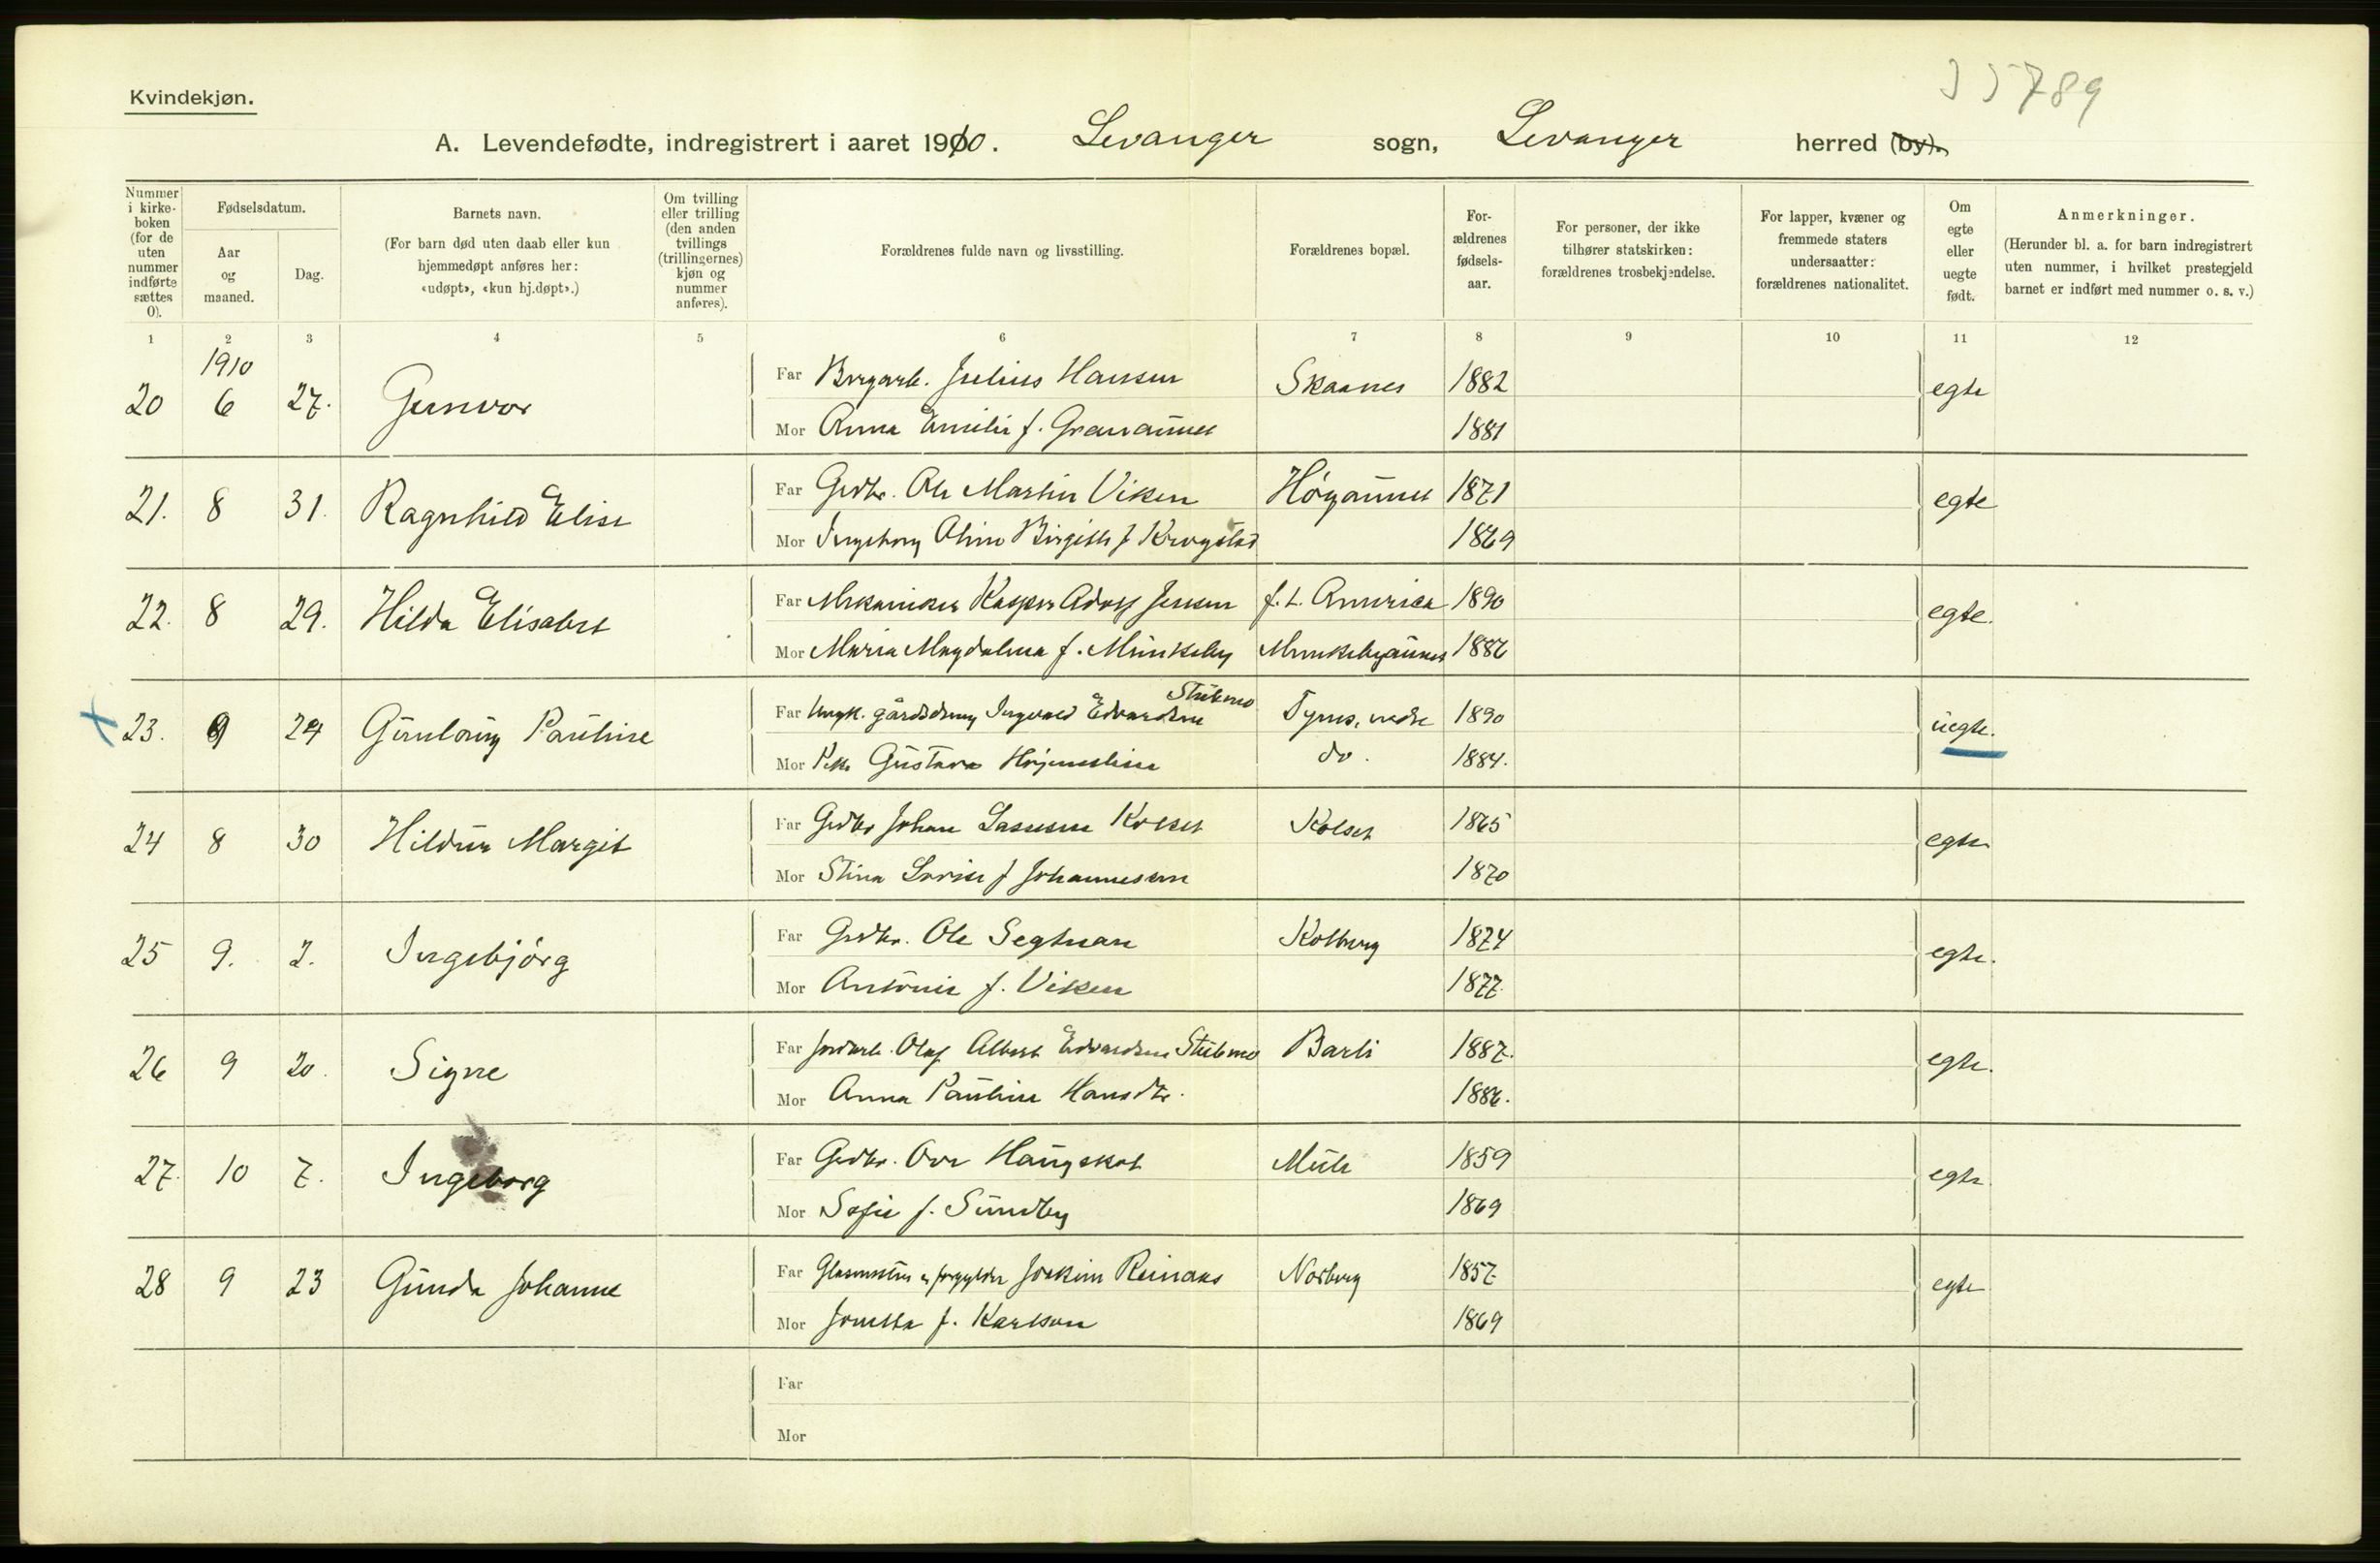 35789
Kvindekjøn.
A. Levendefødte, indregistrert i aaret 1910. Levanger sogn, Levanger herred (by).
Nummer i kirkeboken (for de uten nummer indførte sættes 0).
Fødselsdatum.
Aar og maaned.
Dag.
Barnets navn.
(For barn død uten daab eller kun hjemmedøpt anføres her: «udøpt», «kun hj.døpt».)
Om tvilling eller trilling (den anden tvillings (trillingernes) kjøn og nummer anføres).
Forældrenes fulde navn og livsstilling.
Forældrenes bopæl.
Forældrenes fødselsaar.
For personer, der ikke tilhører statskirken: forældrenes trosbekjendelse.
For lapper, kvæner og fremmede staters undersaatter: forældrenes nationalitet.
Om egte eller uegte født.
Anmerkninger.
(Herunder bl. a. for barn indregistrert uten nummer, i hvilket prestegjeld barnet er indført med nummer o. s. v.)
1 2 3 4 5 6 7 8 9 10 11 12
1910
20 6 27. Gunvor Far Julius Hansen Skaanes 1882 egte
Mor Anna Emilie f. 1881
21. 8 31. Ragnhild Elise Far Grdbr. Ole Martin Viken 1871 egte
Mor Ingeborg Oline f 1869
22. 8 29. Hilda Elisabet Far Kasper Adolf Jensen f. t. America 1890 egte.
Mor Maria Magdalena f. Munkeby 1886
23. 9 24 Gunlaug Pauline Far Ungk. Ingvald Edvardsen 1890 uegte.
Mor Pike Gustava do. 1884.
24 8 30 Hildur Margit Far Grdbr Johan Lassesen Kolset Kolset 1865 egte
Mor Stina Lovise f Johannesen 1870
25 9. 2. Ingebjørg Far Grdbr. Ole Segtnan Kolberg 1874 egte.
Mor Antonie f. Viken 1877.
26 9 20. Signe Far Jordarb. Olaf Albert Edvardsen Barli 1887. egte.
Mor Anna Pauline Hansdtr. 1886.
27. 10 7. Ingeborg Far Grdbr. Mule 1859 egte
Mor Sofie f. Sundby 1869
28 9 23 Gunda Johanne Far Joakim Norberg 1857. egte
Mor Jonetta f. Karlson 1869
Far
Mor